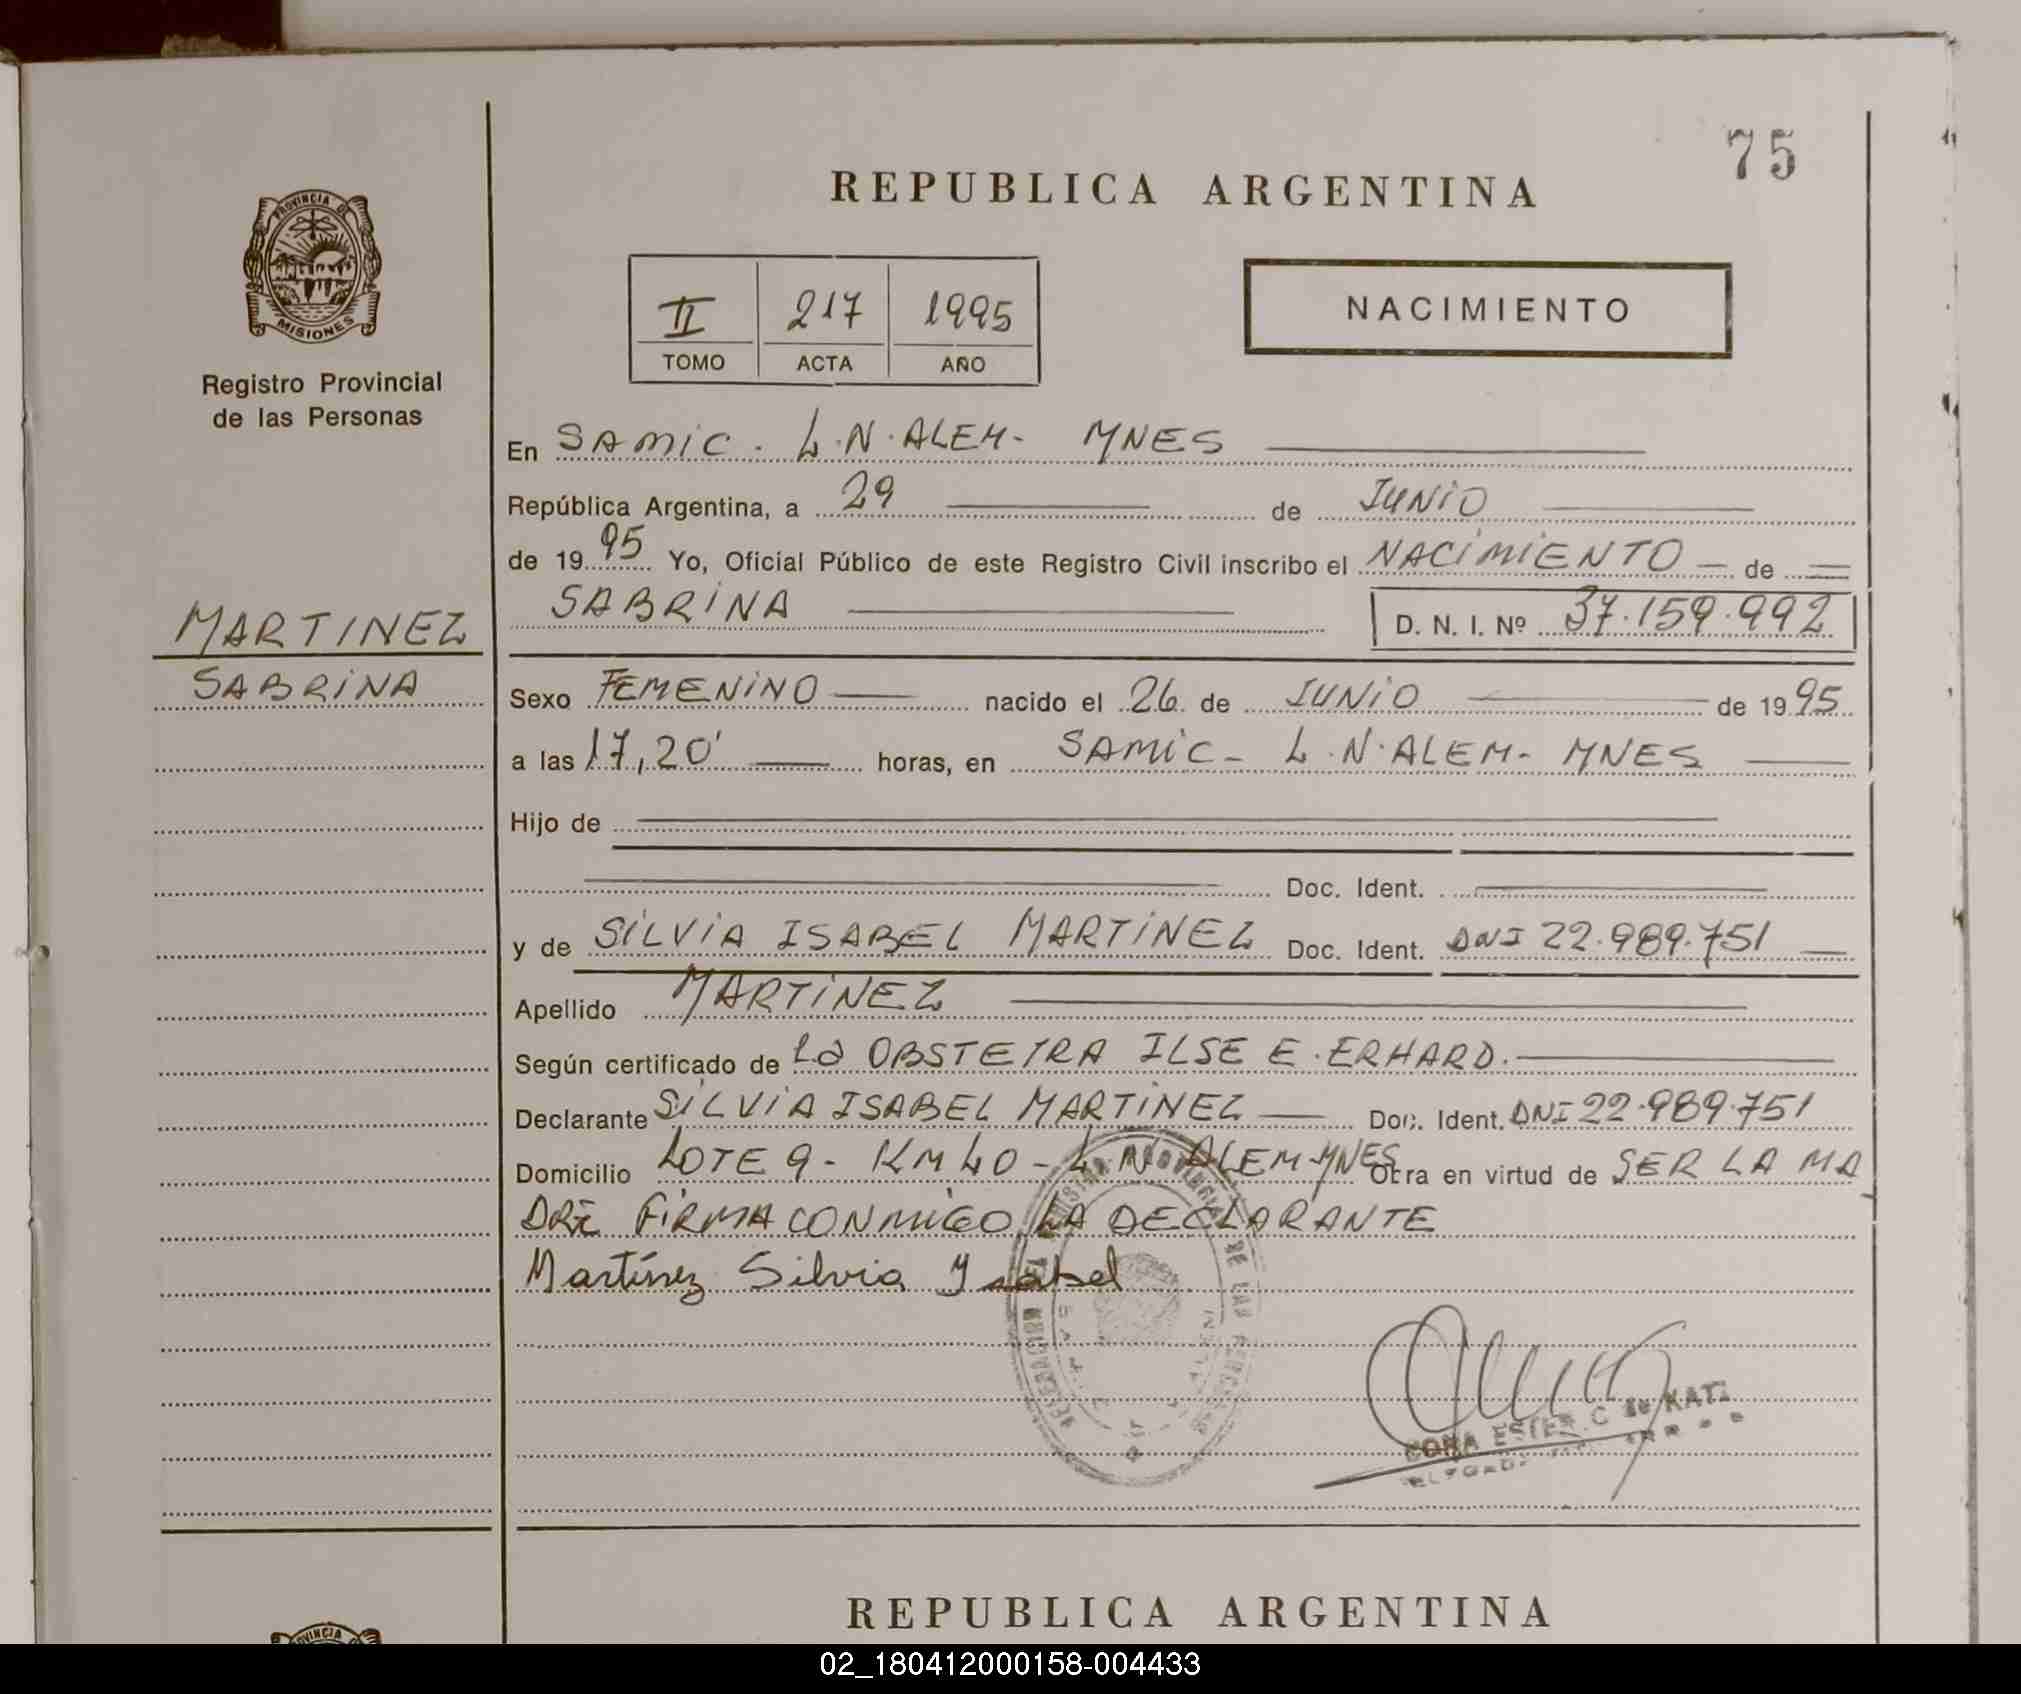 75
REPUBLICA ARGENTINA
PROVINCIA DE
MISIONES
Registro Provincial
de las Personas
II 217 1995
TOMO ACTA AÑO
NACIMIENTO
En SAMIC. L.N.ALEM- MNES
República Argentina, a 29 de JUNIO
de 1995 Yo, Oficial Público de este Registro Civil inscribo el NACIMIENTO de
SABRINA D. N. I. Nº 37.159.992
MARTINEZ
SABRINA
Sexo FEMENINO nacido el 26 de JUNIO de 1995
a las 17,20' horas, en SAMIC- L.N.ALEM- MNES
Hijo de
Doc. Ident.
y de SILVIA ISABEL MARTINEZ Doc. Ident. DNI 22.989.751
Apellido MARTINEZ
Según certificado de La OBSTETRA ILSE E. ERHARD.
Declarante SILVIA ISABEL MARTINEZ Doc. Ident. DNI 22.989.751
Domicilio LOTE 9- KM 40- L.N ALEM-MNES Otra en virtud de SER LA MA
DRE FIRMA CONMIGO LA DECLARANTE
Martínez Silvia Ysabel
REPUBLICA ARGENTINA
02_180412000158-004433